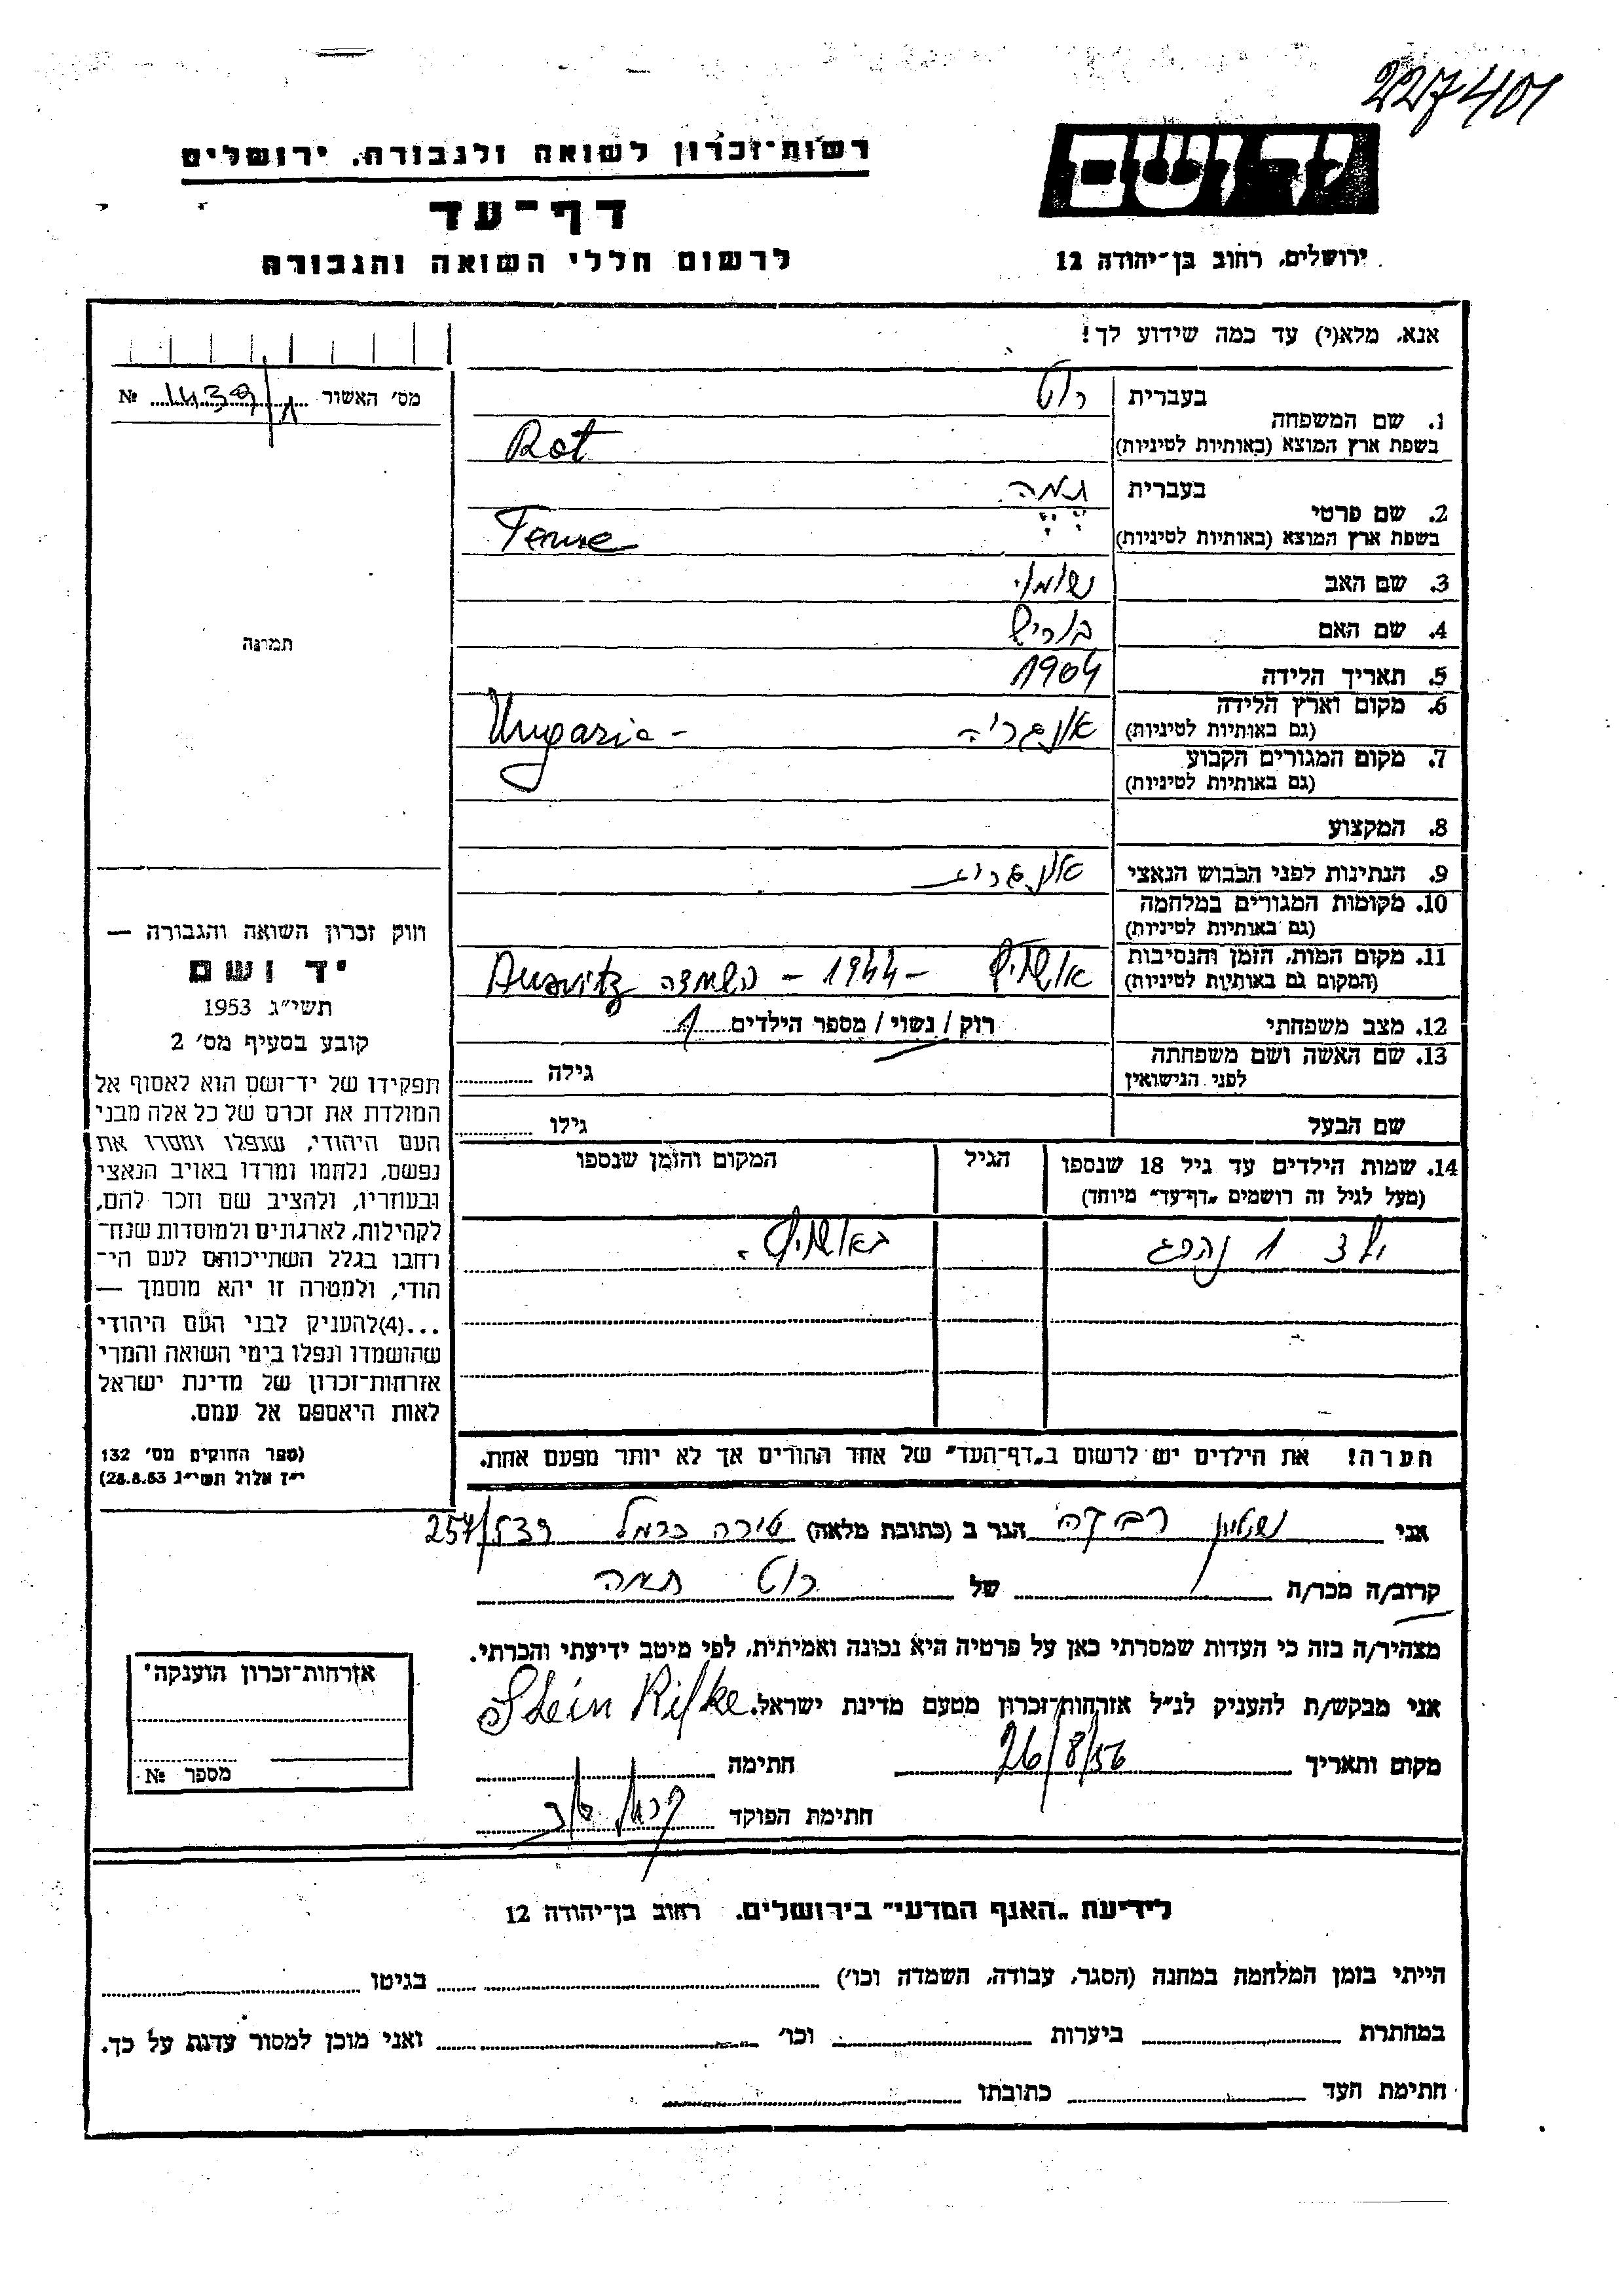 227401
רשות־זכרון לשואה ולגבורה, ירושלים
דף־עד
לרשום חללי השואה והגבורה
יד ושם
ירושלים, רחוב בן־יהודה 12
אנא, מלא(י) עד כמה שידוע לך!
מס׳ האשור 1439/1 №
1. שם המשפחה
בעברית רוט
בשפת ארץ המוצא (באותיות לטיניות) Rot
2. שם פרטי
בעברית
בשפת ארץ המוצא (באותיות לטיניות)
3. שם האב
4. שם האם
5. תאריך הלידה 1904
6. מקום וארץ הלידה
(גם באותיות לטיניות) אונגריה Ungaria -
7. מקום המגורים הקבוע
(גם באותיות לטיניות)
8. המקצוע
9. הנתינות לפני הכבוש הנאצי
10. מקומות המגורים במלחמה
(גם באותיות לטיניות)
11. מקום המות, הזמן והנסיבות
(המקום גם באותיות לטיניות) אושויץ - 1944 - השמדה
12. מצב משפחתי רוק / נשוי / מספר הילדים 1
13. שם האשה ושם משפחתה
לפני הנישואין גילה
שם הבעל גילו
14. שמות הילדים עד גיל 18 שנספו
(מעל לגיל זה רושמים „דף־עד״ מיוחד)
הגיל
המקום והזמן שנספו
ילד 1 באושויץ.
הערה! את הילדים יש לרשום ב„דף־העד״ של אחד ההורים אך לא יותר מפעם אחת.
תמונה
חוק זכרון השואה והגבורה —
יד ושם
תשי״ג 1953
קובע בסעיף מס׳ 2
תפקידו של יד־ושם הוא לאסוף אל
המולדת את זכרם של כל אלה מבני
העם היהודי, שנפלו ומסרו את
נפשם, נלחמו ומרדו באויב הנאצי
ובעוזריו, ולהציב שם וזכר להם,
לקהילות, לארגונים ולמוסדות שנח־
רחבו בגלל השתייכותם לעם הי־
הודי, ולמטרה זו יהא מוסמך —
...(4)להעניק לבני העם היהודי
שהושמדו ונפלו בימי השואה והמרי
אזרחות־זכרון של מדינת ישראל
לאות היאספם אל עמם.
(ספר החוקים מס׳ 132
י״ז אלול תשי״ג 28.8.53)
אני שטיין רבקה הגר ב (כתובת מלאה) טירה כרמל 257/539
קרוב/ה מכר/ה של רוט
מצהיר/ה בזה כי העדות שמסרתי כאן על פרטיה היא נכונה ואמיתית, לפי מיטב ידיעתי והכרתי.
אני מבקש/ת להעניק לנ״ל אזרחות־זכרון מטעם מדינת ישראל. Stein Rifke
מקום ותאריך 26/8/56 חתימה
חתימת הפוקד
אזרחות־זכרון הוענקה
מספר №
לידיעת „האגף המדעי״ בירושלים. רחוב בן־יהודה 12
הייתי בזמן המלחמה במחנה (הסגר, עבודה, השמדה וכו׳) בגיטו
במחתרת ביערות וכו׳ ואני מוכן למסור עדות על כך.
חתימת העד כתובתו